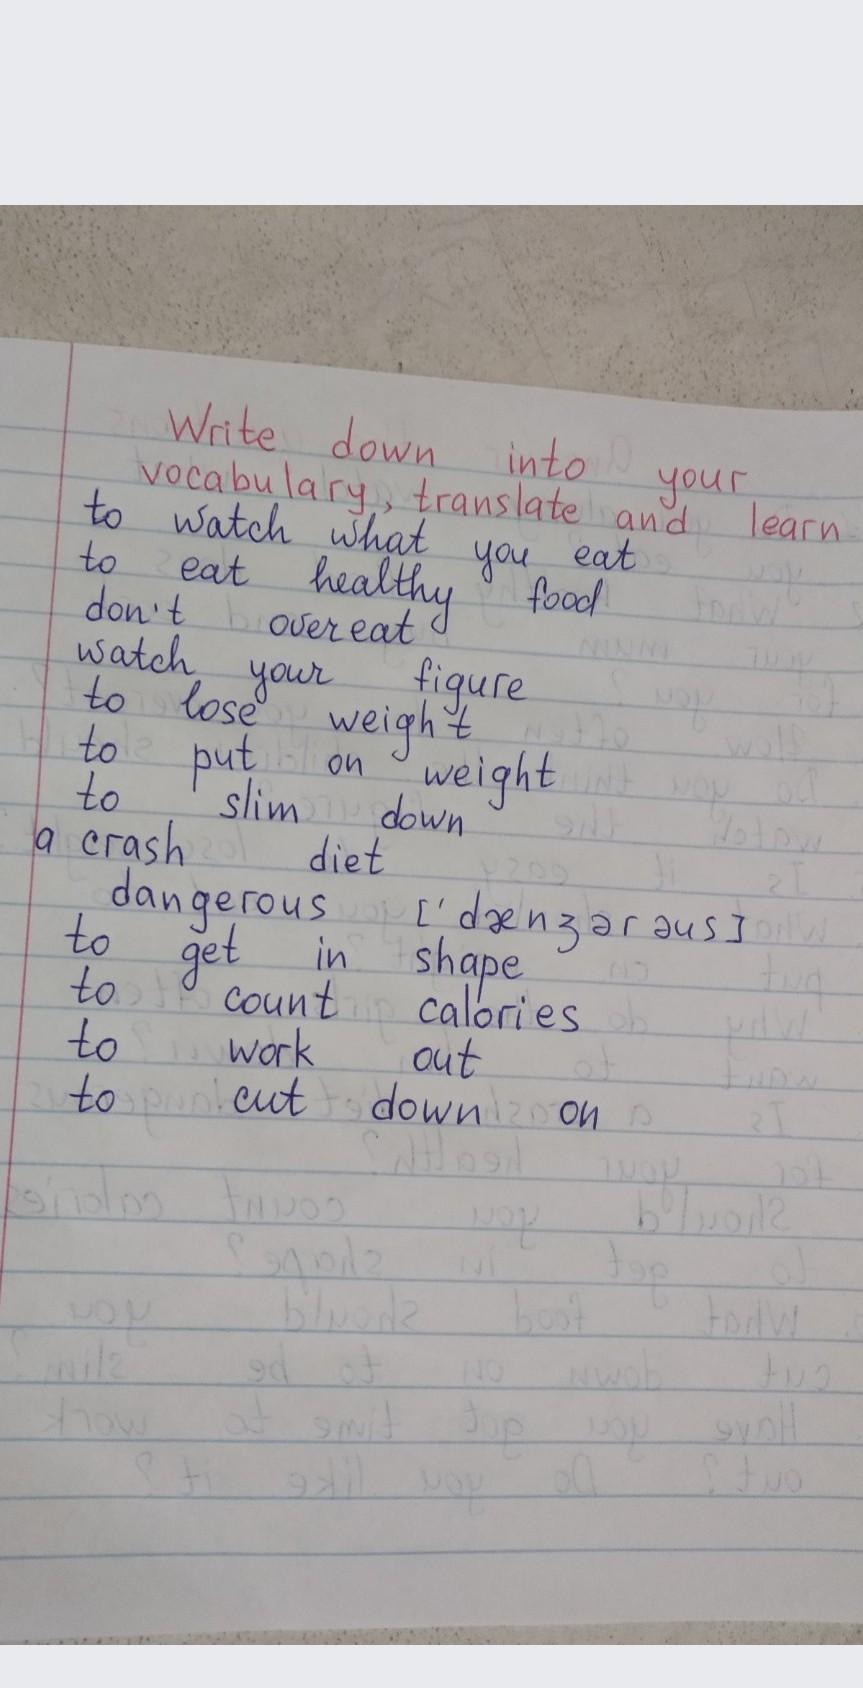 Write down into your
vocabulary, translate and learn
to watch what you eat
to eat healthy food
don't overeat
watch your figure
to lose weight
to put on weight
to slim down
a crash diet
dangerous ['dænʒərəus]
to get in shape
to count calories
to work out
to cut down on